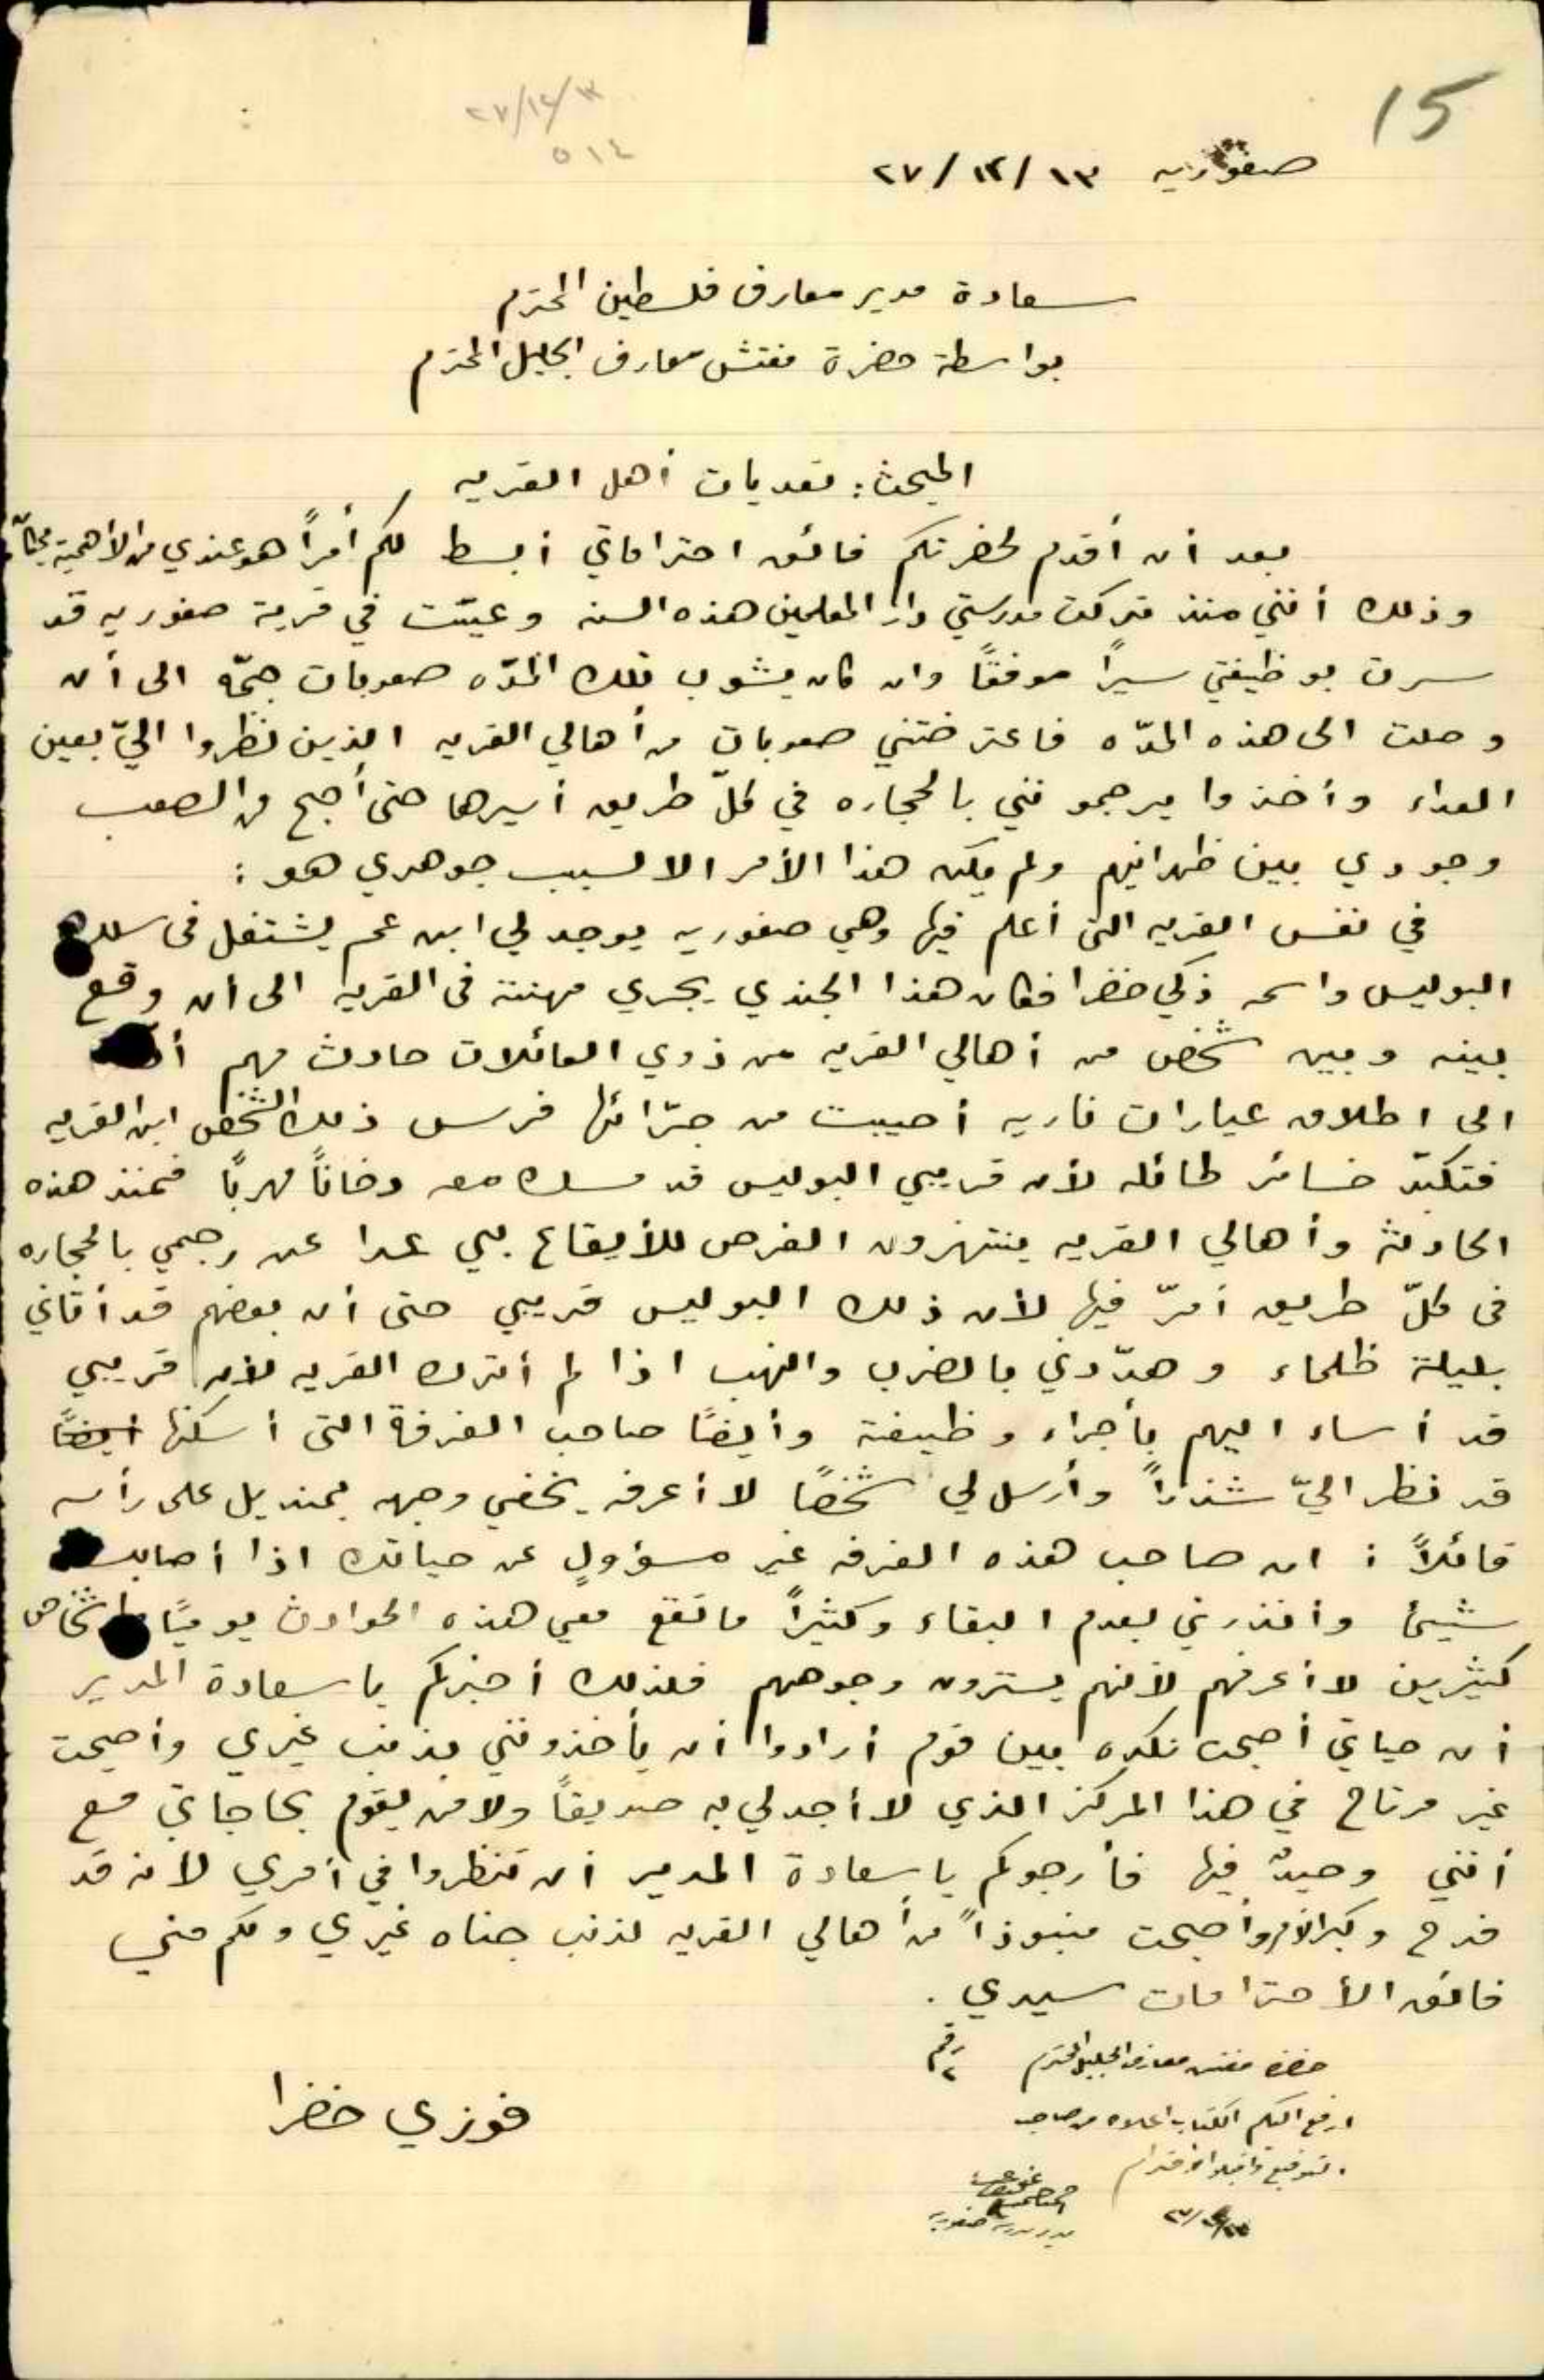 15
٢٧/١٢/١٣
٥١٤
صفوريه ٢٧/١٢/١٣
سعادة مدير معارف فلسطين المحترم
بواسطة حضرة مفتش معارف الجليل المحترم
المبحث: تعديات أهل القريه
بعد أن أقدم لحضرتكم فائق احتراماتي أبسط لكم أمراً هو عندي من الأهمية بمكان
وذلك أنني منذ تركت مدرستي دار المعلمين هذه السنه وعيّنت في قرية صفوريه قد
سرت بوظيفتي سيراً موفقاً وان كان يشوب تلك المدّه صعوبات جمّه الى أن
وصلت الى هذه المدّه فاعترضتني صعوبات من أهالي القريه الذين نظروا اليّ بعين
العداء وأخذوا يرجمونني بالحجاره في كلّ طريق أسيرها حتى أصبح من الصعب
وجودي بين ظهرانيهم ولم يكن هذا الأمر الا لسبب جوهري هو:
في نفس القريه التى أعلم فيها وهي صفوريه يوجد لي ابن عم يشتغل فى سلك
البوليس واسمه زكي خضرا فكان هذا الجندي يجري مهنته فى القريه الى أن وقع
بينه وبين شخص من أهالي القريه من ذوي العائلات حادث مهم
الى اطلاق عيارات ناريه أصيبت من جرّائها فرس ذلك الشخص ابن القريه
فتكبّد خسائر طائله لأن قريبي البوليس قد مسك معه دخاناً مهرباً فمنذ هذه
الحادثة وأهالي القريه ينتهزون الفرص للأيقاع بي عدا عن رجمي بالحجاره
فى كلّ طريق أمرّ فيها لأن ذلك البوليس قريبي حتى أن بعضهم قد أتاني
بليلة ظلماء وهدّدني بالضرب والنهب اذا لم أترك القريه لأن قريبي
قد أساء اليهم بأجراء وظيفته وأيضاً صاحب الغرفة التى أسكنها ايضاً
قد نظر اليّ شذراً وأرسل لي شخصاً لا أعرفه يخفي وجهه بمنديل على رأسه
قائلاً: ان صاحب هذه الغرفه غير مسؤول عن حياتك اذا أصابك
شيئ وأنذرني بعدم البقاء وكثيراً ما تقع معي هذه الحوادث يومياً بأشخاص
كثيرين لا أعرفهم لأنهم يسترون وجوههم فلذلك أخبركم يا سعادة المدير
أن حياتي أصبحت نكده بين قوم أرادوا أن يأخذونني بذنب غيري وأصبحت
غير مرتاح في هذا المركز الذي لا أجد لي به صديقاً ولا من يقوم بحاجاتي مع
أنني وحيدٌ فيها فأرجوكم يا سعادة المدير أن تنظروا في أمري لأنه قد
فدح وكبر الأمر وأصبحت منبوذاً من أهالي القريه لذنب جناه غيري ولكم مني
فائق الأحترامات سيدي.
حضرة مفتش معارف الجليل المحترم
ارفع اليكم الكتاب اعلاه من صاحب
التوقيع واقبلوا احترام
فوزي خضرا
مدير مدرسة صفوريه